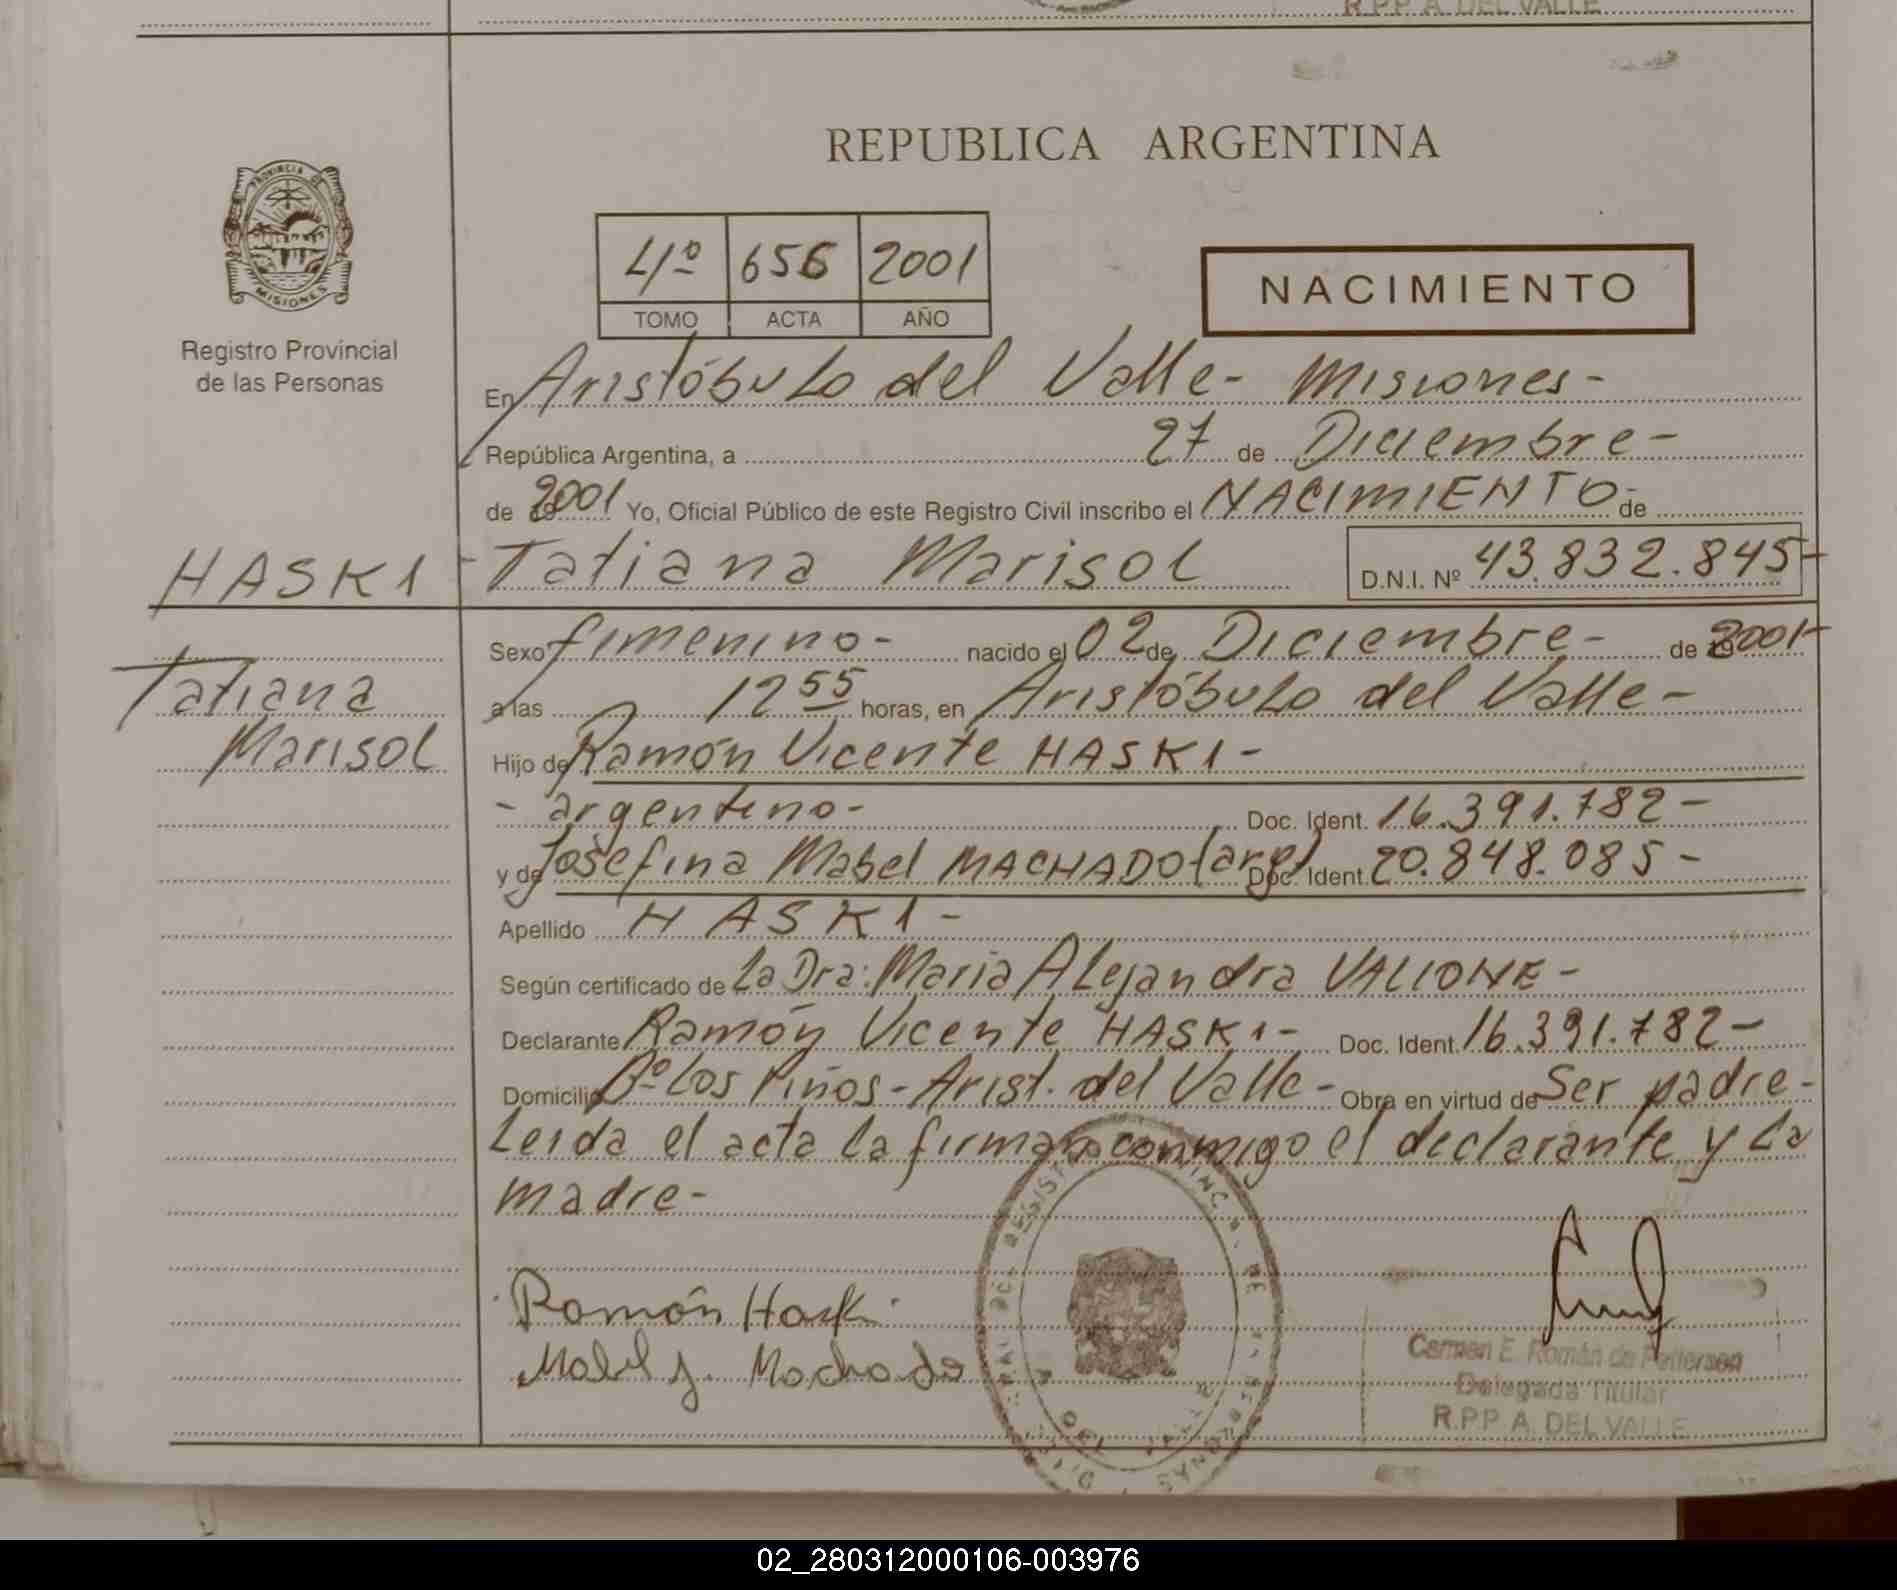 R.P.P. A. DEL VALLE
REPUBLICA ARGENTINA
PROVINCIA DE
MISIONES
Registro Provincial
de las Personas
4º 656 2001
TOMO ACTA AÑO
NACIMIENTO
En Aristóbulo del Valle - Misiones -
República Argentina, a 27 de Diciembre -
de 2001 Yo, Oficial Público de este Registro Civil inscribo el NACIMIENTO - de
HASKI - Tatiana Marisol D.N.I. Nº 43.832.845 -
Sexo fimenino - nacido el 02 de Diciembre - de 2001 -
Tatiana
a las 12 55 horas, en Aristóbulo del Valle -
Marisol
Hijo de Ramón Vicente HASKI -
- argentino - Doc. Ident. 16.391.782 -
y de Josefina Mabel MACHADO (arg) Doc. Ident. 20.848.085 -
Apellido HASKI -
Según certificado de La Dra: Maria Alejandra VALIONE -
Declarante Ramón Vicente HASKI - Doc. Ident. 16.391.782 -
Domicilio Bº Los Piños - Arist. del Valle - Obra en virtud de Ser padre -
Leida el acta la firman conmigo el declarante y la
madre -
Ramón Haski
Mabel J. Machado
Carmen E. Román de Pettersen
Delegada Titular
R.P.P. A. DEL VALLE
02_280312000106-003976